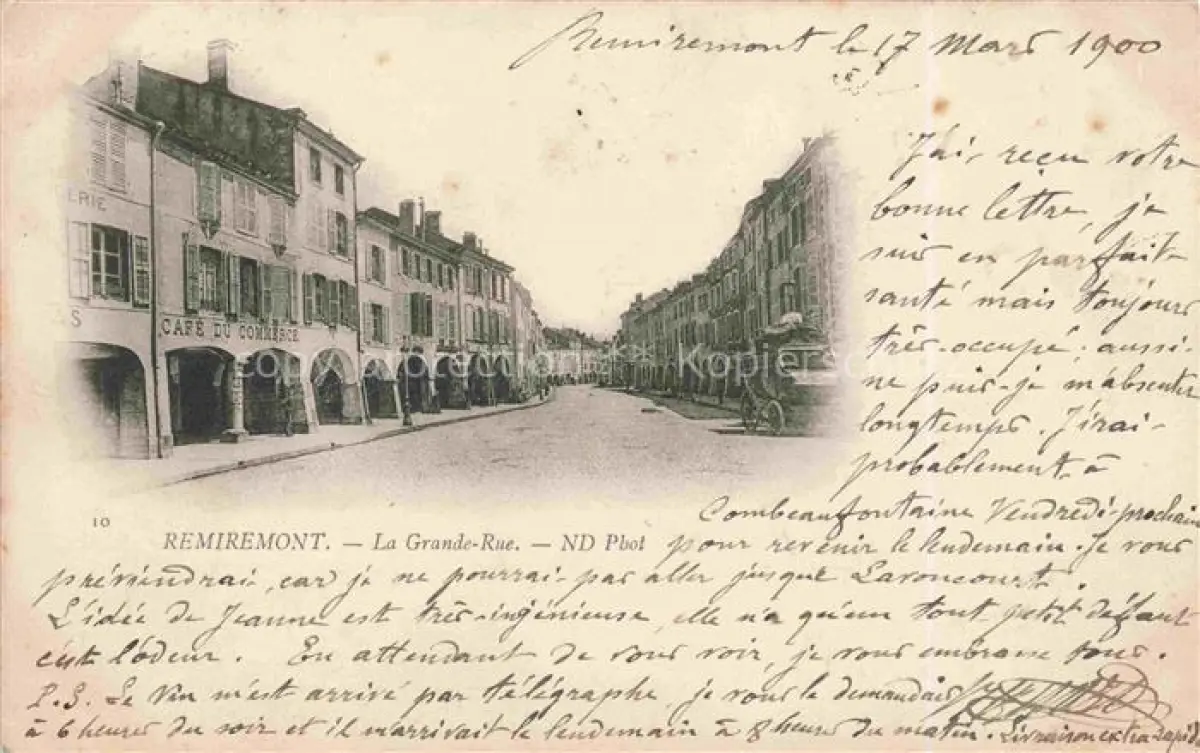 Remiremont le 17 Mars 1900
J'ai reçu votre
bonne lettre, je
suis en parfait
santé mais toujours
très-occupé, aussi
ne puis-je m'absenter
longtemps. J'irai
probablement à
Combeaufontaine Vendredi-prochain
pour revenir le lendemain. Je vous
préviendrai, car je ne pourrai pas aller jusque Lavoncourt.
L'idée de Jeanne est très-ingénieuse, elle n'a qu'un tout petit défaut
c'est l'odeur. En attendant de vous voir, je vous embrasse tous.
P.S. Le vin m'est arrivé par télégraphe, je vous le demandais
à 6 heures du soir et il m'arrivait le lendemain à 8 heures du matin. Livraison extra rapide
LRIE
S
CAFÉ DU COMMERCE
10
REMIREMONT. — La Grande-Rue. — ND Phot
copy protection
Kopierschutz